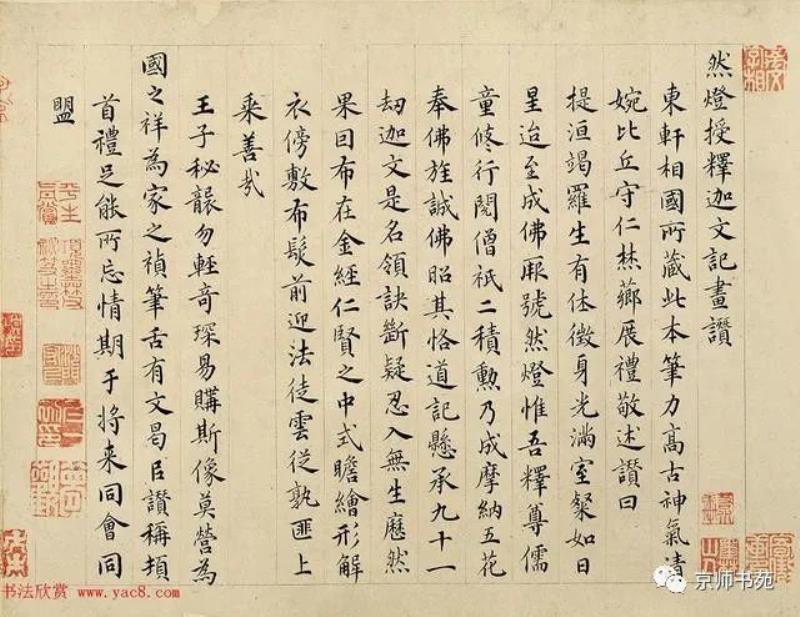 然燈授釋迦文記畫讚
東軒相國所藏此本筆力高古神氣清
婉比丘守仁焚薌展禮敬述讚曰
提洹竭羅生有休徵身光滿室粲如日
星迨至成佛厥號然燈惟吾釋尊儒
童修行閱僧祇二積勳乃成摩納五花
奉佛旌誠佛昭其恪道記懸承九十一
劫迦文是名領訣斷疑忍入無生歷然
果因布在金經仁賢之中式瞻繪形解
衣傍敷布髮前迎法徒雲從孰匪上
乘善哉
王子秘襲勿輕奇琛易購斯像莫營為
國之祥為家之禎筆舌有文曷臣讚稱頂
首禮足能所忘情期于將来同會同
盟
书法欣赏 www.yac8.com
京师书苑